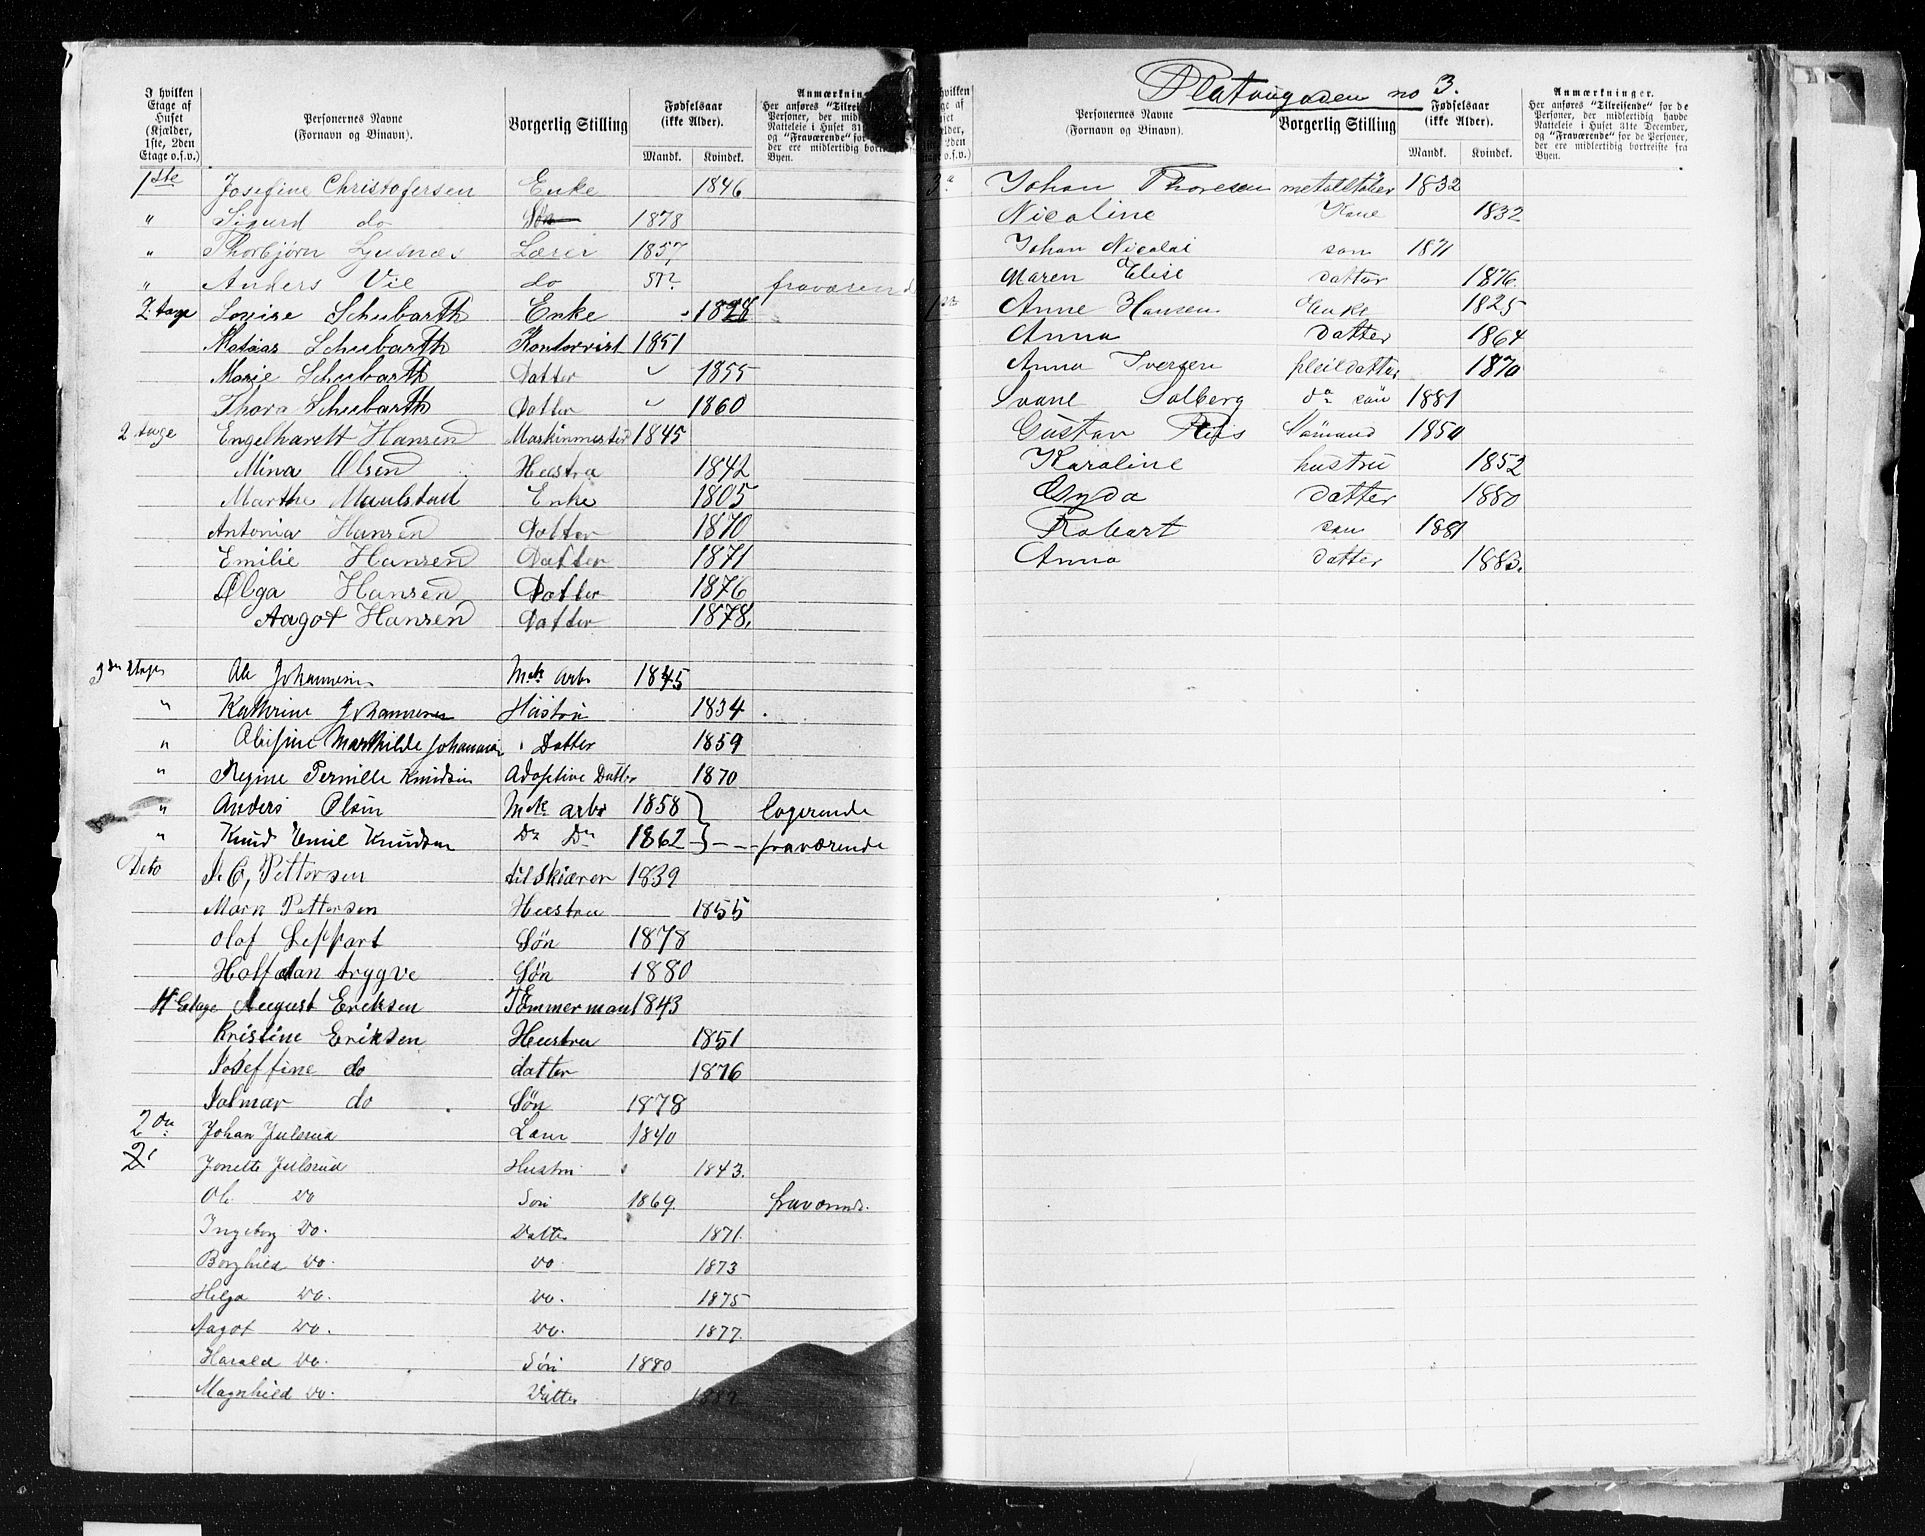 I hvilken Etage af Huset (Kjælder, 1ste, 2den Etage o.s.v.)
Personernes Navne (Fornavn og Binavn).
Borgerlig Stilling
Fødselsaar (ikke Alder).
Mandk. Kvindek.
Anmærkning
Her anføres "Tilreisende"
Personer, der midlertidig
Natteleie i Huset 31te
og "Fraværende" for
der ere midlertidig bortreiste
Byen.
1ste Josefine Christofersen Enke 1846
" Sigurd do Søn 1878
" Thorbjørn Lysnæs Lærer 1857
" Anders Vie do 57 fraværend
2 tage Louise Schubarth Enke 1828
Matias Schubarth Kontorrist 1851
Marie Schubarth Datter 1855
Thora Schubarth Datter 1860
2 tage Engelharett Hansen Maskinmester 1845
Mina Olsen Hustru 1842
Marthe Maulstad Enke 1805
Antonia Hansen Datter 1870
Emilie Hansen Datter 1871
Olga Hansen Datter 1876
Aagot Hansen Datter 1878.
3die Etage Ole Johannesen Mek arb 1845
" Kathrine Johannesen Hustru 1834
" Mathilde Johannesen Datter 1859
" Regine Pernille Knudsen Adoptive Datter 1870
" Anders Olsen Mek arb 1858 logerende
" Knud Emil Knudsen Do Do 1862 fraværende
Deto P. C, Pettersen tilskiærer 1839
Marn Pettersen Hustru 1855
Olaf Leffart Søn 1878
Halfdan trygve Søn 1880
4 Etage August Eriksen Tømmerman 1843
Kristine Eriksen Hustru 1851
Joseffine do datter 1876
Jalmar do Søn 1878
2den Johan Julsrud Lærer 1840
2 Jonette Julsrud Hustru 1843.
Ole Do Søn 1869. fraværende.
Ingeborg Do. Datter 1871.
Borghild Do. Do 1873
Helga Do. Do. 1875
Aagot Do. Do. 1877.
Harald Do. Søn 1880
Magnhild Do. Datter 1882
Platougaden no 3.
hvilken
Etage af
Huset
Personernes Navne (Fornavn og Binavn).
Borgerlig Stilling
Fødselsaar (ikke Alder).
Mandk. Kvindek.
Anmærkninger.
Her anføres "Tilreisende" for de
Personer, der midlertidig havde
Natteleie i Huset 31te December,
og "Fraværende" for de Personer,
der ere midlertidig bortreiste fra
Byen.
Johan Thoresen 1832
Nicoline Kone 1832
Johan Nicolai søn 1871
Maren Elise datter 1876.
Anne Hansen Enke 1825
Anna Datter 1864
Anna Iversen pleiedatter 1870
Svane Solberg do søn 1881
Gustav Sømand 1850
Karoline hustru 1852
datter 1880
Robart søn 1881
Anna datter 1883.